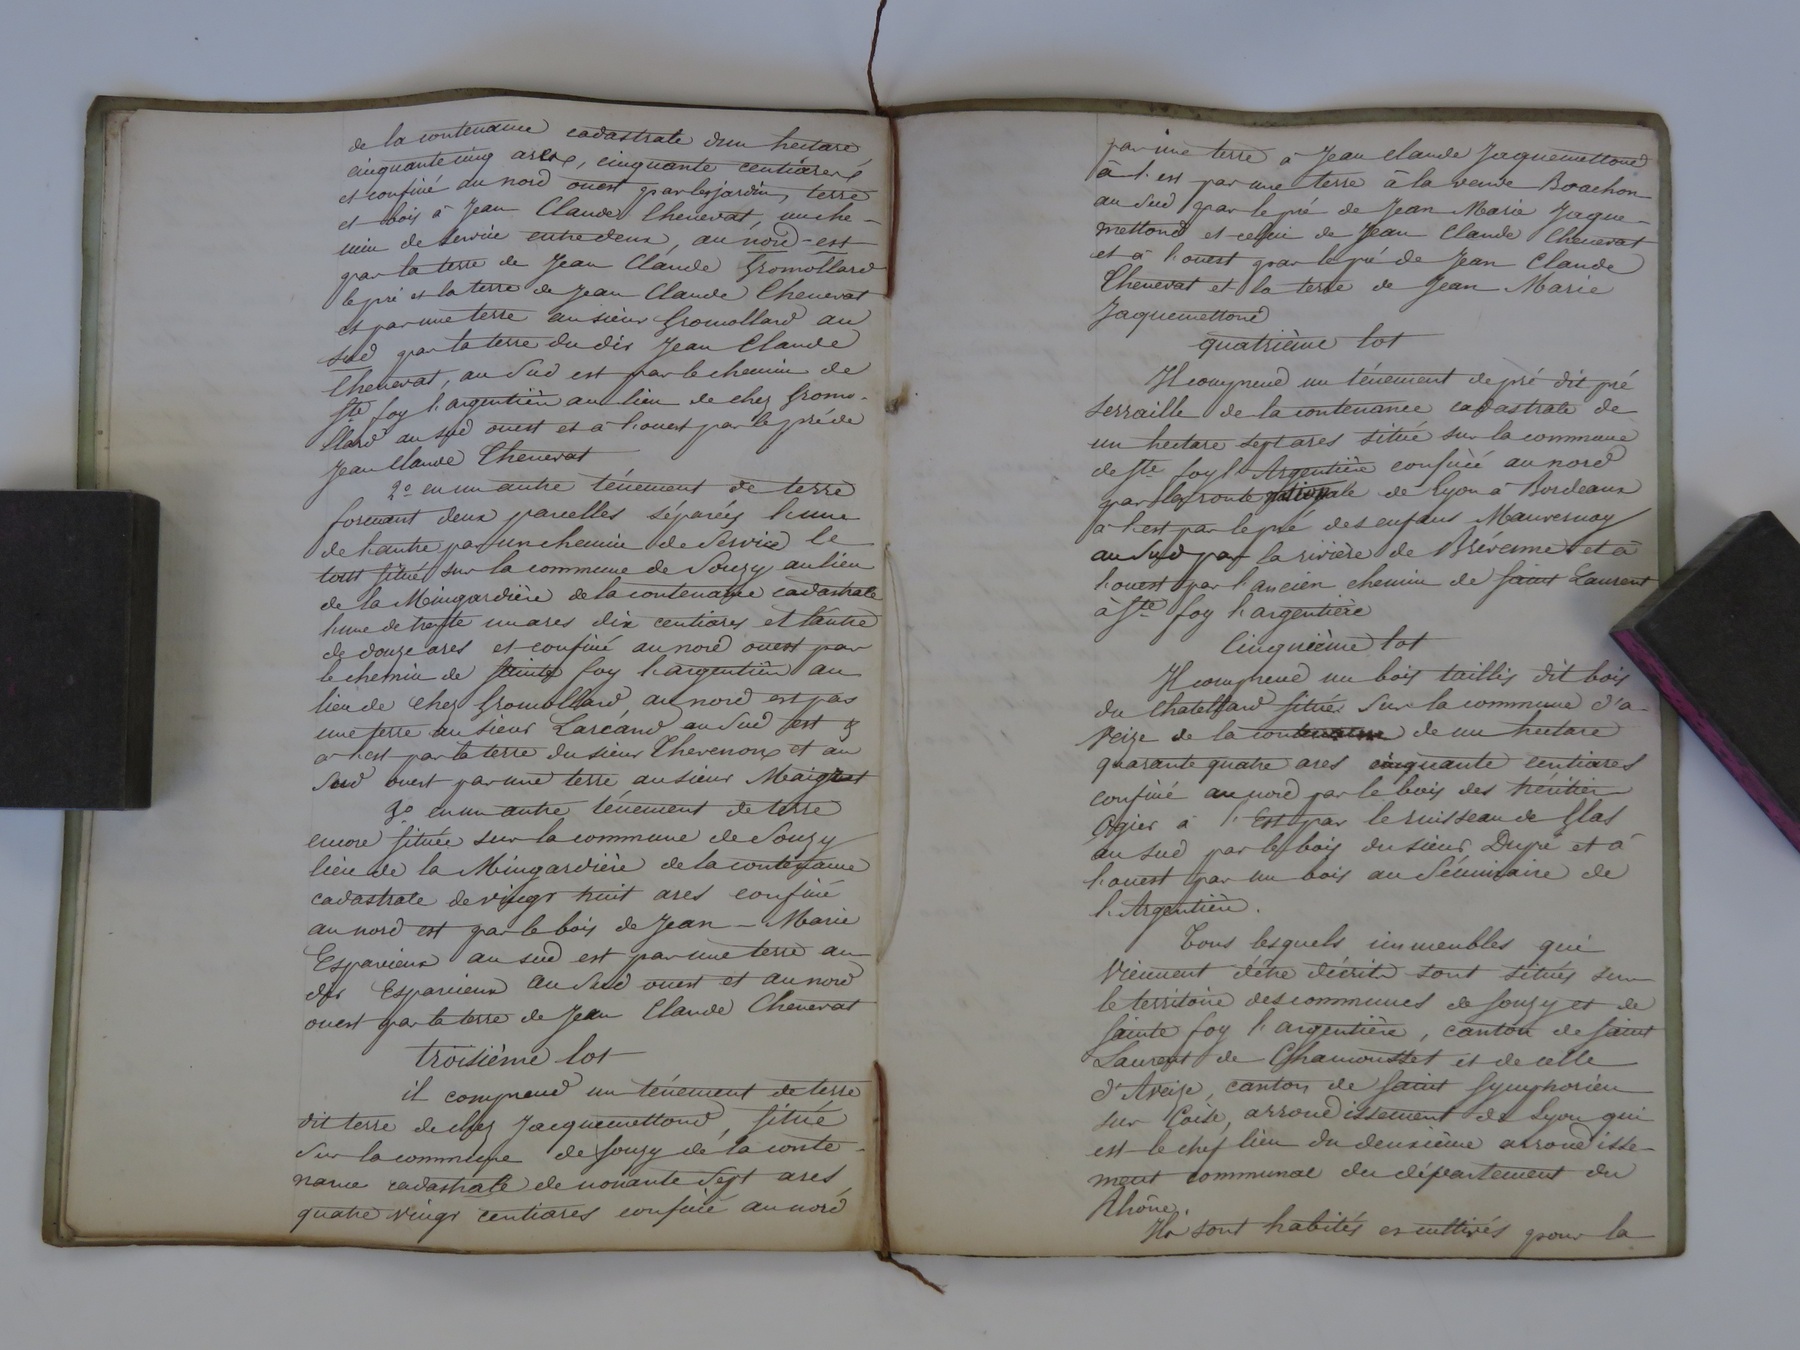 de la contenance cadastrale d'un hectare
cinquante cinq ares, cinquante centiares
et confiné au nord ouest par les jardin, terre
et bois à Jean Claude Chenevat, un che-
min de service entre deux, au nord-est
par la terre de Jean Claude Gromollard
le pré et la terre de Jean Claude Chenevat
et par une terre au sieur Gromollard au
sud par la terre du dit Jean Claude
Chenevat, au sud est par le chemin de
Ste foy l'argentière au lieu de chez Gromo-
llard au sud ouest et à l'ouest par le pré de
Jean Claude Chenevat
2o en un autre ténement de terre
formant deux parcelles séparées l'une
de l'autre par un chemin de service le
tout situé sur la commune de Souzy au lieu
de la Mingardière de la contenance cadastrale
l'une de trente un ares dix centiares et l'autre
de douze ares et confiné au nord ouest par
le chemin de Sainte foy l'argentière au
lieu de chez Gromollard, au nord est par
une terre au sieur Larcand au sud est &
à l'est par la terre du sieur Thevenon et au
sud ouest par une terre au sieur Maignet
3o en un autre ténement de terre
encore située sur la commune de Souzy
lieu de la Mingardière de la contenance
cadastrale de vingt huit ares confiné
au nord est par le bois de Jean-Marie
Esparcieux au sud est par une terre au
dit Esparcieux au sud ouest et au nord
ouest par la terre de Jean Claude Chenevat
troisième lot
il comprend un ténement de terre
dit terre de chez Jacquemettond, situé
sur la commune de Souzy de la conte-
nance cadastrale de nonante sept ares,
quatre vingt centiares confiné au nord
par une terre à Jean Claude Jaquemettond
à l'est par une terre à la veuve Boachon
au sud par le pré de Jean Marie Jaque-
mettond et celui de Jean Claude Chenevat
et à l'ouest par le pré de Jean Claude
Chenevat et la terre de Jean Marie
Jaquemettond
quatrième lot
Il comprend un ténement de pré dit pré
Serraille de la contenance cadastrale de
un hectare sept ares situé sur la commune
de Ste foy l'Argentière confiné au nord
par la route nationale de Lyon à Bordeaux
à l'est par le pré des enfans Mauvernay
au sud par la rivière de Brévenne et à
l'ouest par l'ancien chemin de Saint Laurent
à Ste foy l'argentière
Cinquième lot
Il comprend un bois taillis dit bois
du Chatellard situé sur la commune d'a-
veize de la contenance de un hectare
quarante quatre ares cinquante centiares
confiné au nord par le bois des héritier
Ogier à l'Est par le ruisseau de Glas
au sud par le bois du sieur Dupré et à
l'ouest par un bois au Séminaire de
l'Argentière.
Tous lesquels immeubles qui
viennent d'être décrits sont situés sur
le territoire des communes de Souzy et de
Sainte foy l'argentière, canton de Saint
Laurent de Chamousset et de celle
d'Aveize, canton de Saint Symphorien
sur Coise, arrondissement de Lyon qui
est le chef lieu du deuxième arrondisse-
ment communal du département du
Rhône.
Ils sont habités et cultivés pour la